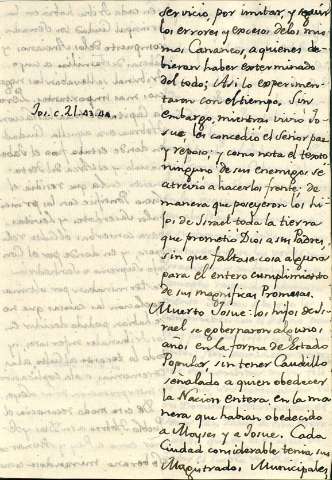 servicio, por imitar, y seguir
los errores y excesos de los mis
mos Cananeos, a quienes de
bieran haber exterminado
del todo; Asi lo experimen
taron con el tiempo. Sin
embargo, mientras vivio Jo
sue, les concedió el Señor paz
y reposo; y como nota el texto
ninguno de sus enemigos se
atrevió a hacerlos frente; de
manera que poseyeron los hi
jos de Israel toda la tierra
que prometió Dios a sus Padres,
sin que faltase cosa alguna
para el entero cumplimiento
de sus magnificas Promesas.
Muerto Josue: los hijos de Is
rael se gobernaron algunos
años en la forma de Estado
Popular, sin tener Caudillo
señalado a quien obedeciese
la Nacion entera, en la ma
nera que habian obedecido
a Moyses y a Josue. Cada
Ciudad considerable tenia sus
Magistrados Municipales
Jos. c. 21. 43. 44.